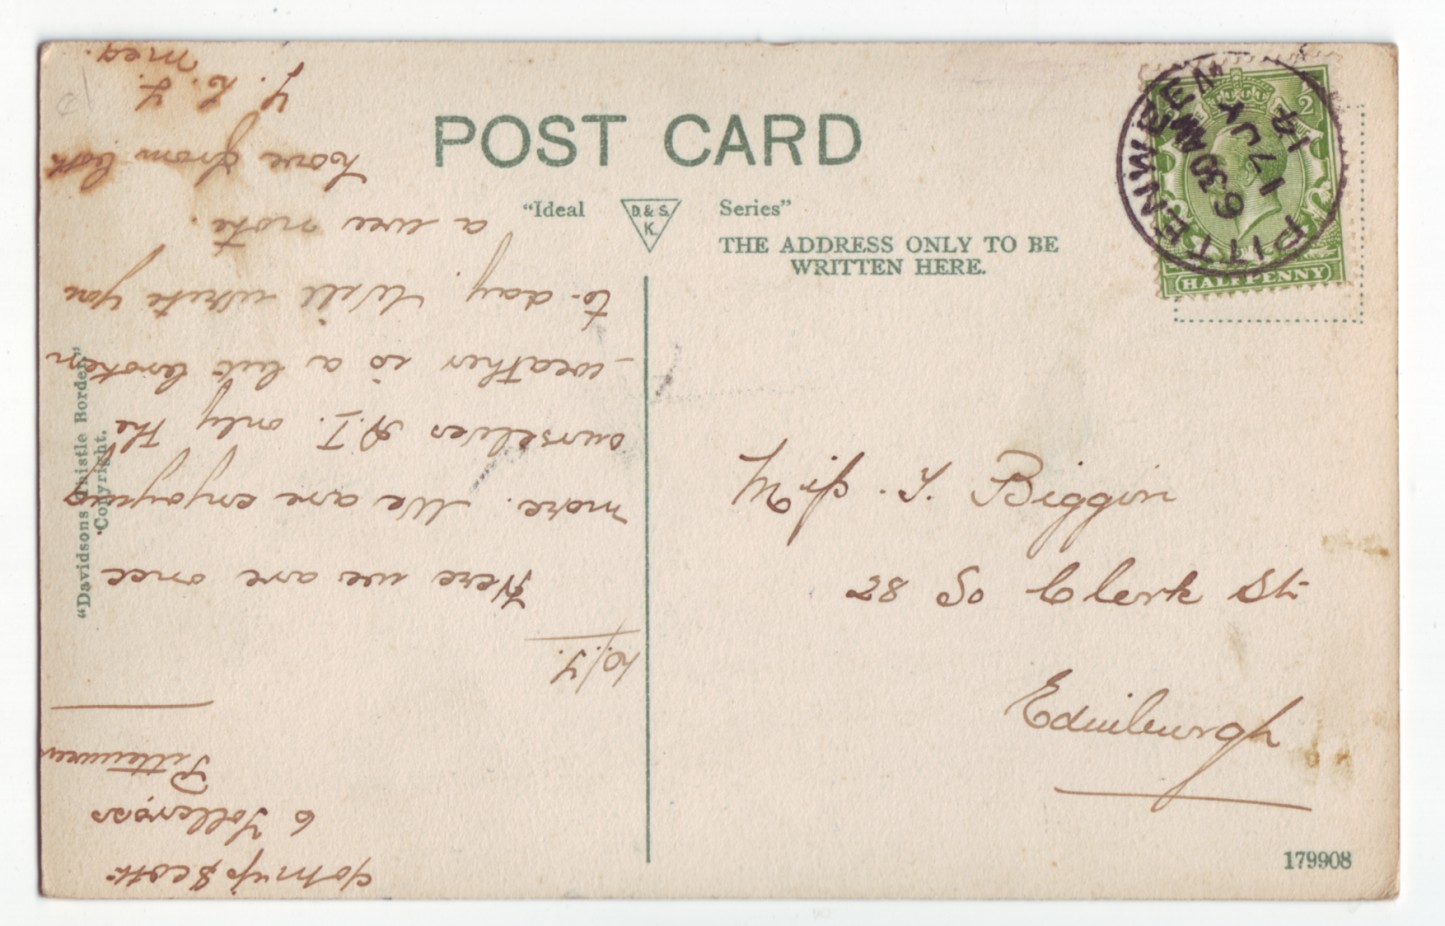 POST CARD
"Ideal
D. & S.
K.
Series"
THE ADDRESS ONLY TO BE
WRITTEN HERE.
PITTENWEEM
630 AM
17 JY
14
1/2
HALFPENNY
Miss. J. Biggin
28 So Clerk St.
Edinburgh
179908
"Davidsons Thistle Border"
Copyright.
Scott
6 Tollcross
Pittenweem
Here we are once
more. We are enjoying
ourselves A.1. only the
weather is a bit broken
to-day. Will write you
a wee note.
Love from
Meg.